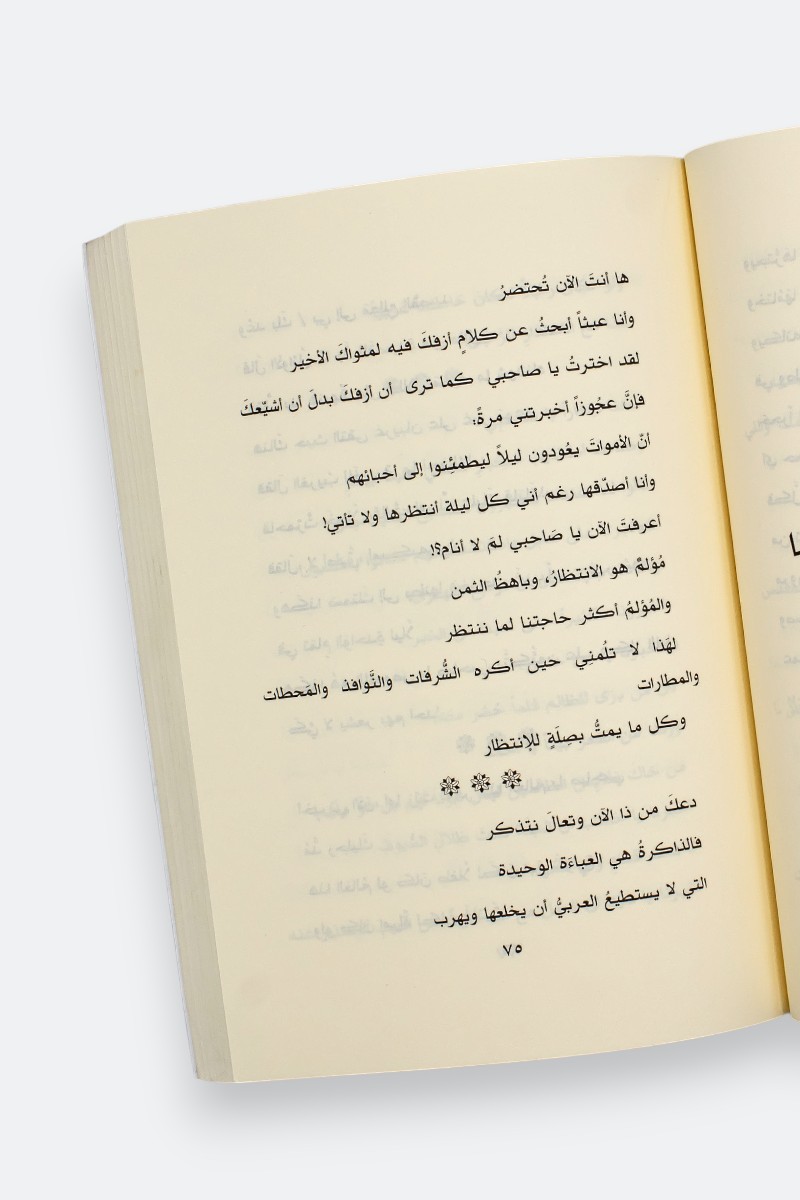 ها أنتَ الآن تُحتضرُ
وأنا عبثاً أبحثُ عن كلامٍ أزفكَ فيه لمثواكَ الأخير
لقد اخترتُ يا صاحبي كما ترى أن أزفكَ بدلَ أن أشيّعكَ
فإنَّ عجُوزاً أخبرتني مرةً:
أنّ الأمواتَ يعُودون ليلاً ليطمئِنوا إلى أحبائهم
وأنا أصدّقها رغم أني كل ليلة أنتظرها ولا تأتي!
أعرفتَ الآن يا صَاحبي لمَ لا أنام؟!
مُؤلمٌ هو الانتظارُ، وباهظُ الثمن
والمُؤلمُ أكثر حاجتنا لما ننتظر
لهَذا لا تلُمنِي حين أكره الشُّرفات والنَّوافذ والمَحطات
والمطارات
وكل ما يمتُّ بصِلَةٍ للإنتظار
دعكَ من ذا الآن وتعالَ نتذكر
فالذاكرةُ هي العباءَة الوحيدة
التي لا يستطيعُ العربيُّ أن يخلعها ويهرب
٧٥